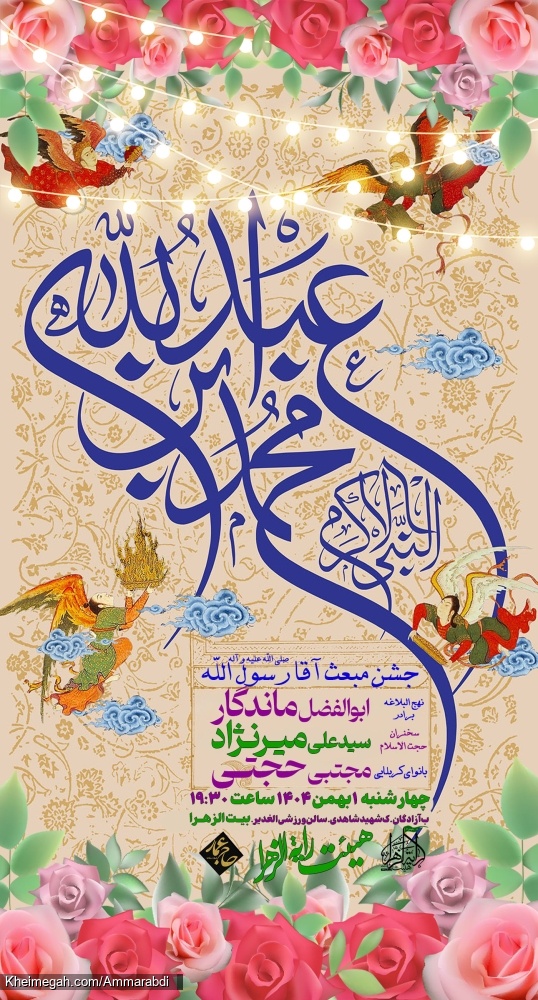 محمد بن عبدالله
النبی الاکرم
جشن مبعث آقا رسول الله صلی الله علیه و آله
نهج البلاغه برادر ابوالفضل ماندگار
سخنران حجت الاسلام سیدعلی میرنژاد
بانوای کربلایی مجتبی حجتی
چهارشنبه ۱ بهمن ۱۴۰۴ ساعت ۱۹:۳۰
ب.آزادگان.ک.شهیدشاهدی.سالن‌ورزشی‌الغدیر.بیت الزهرا
هیئت رایة الزهرا
Kheimegah.com/Ammarabdi